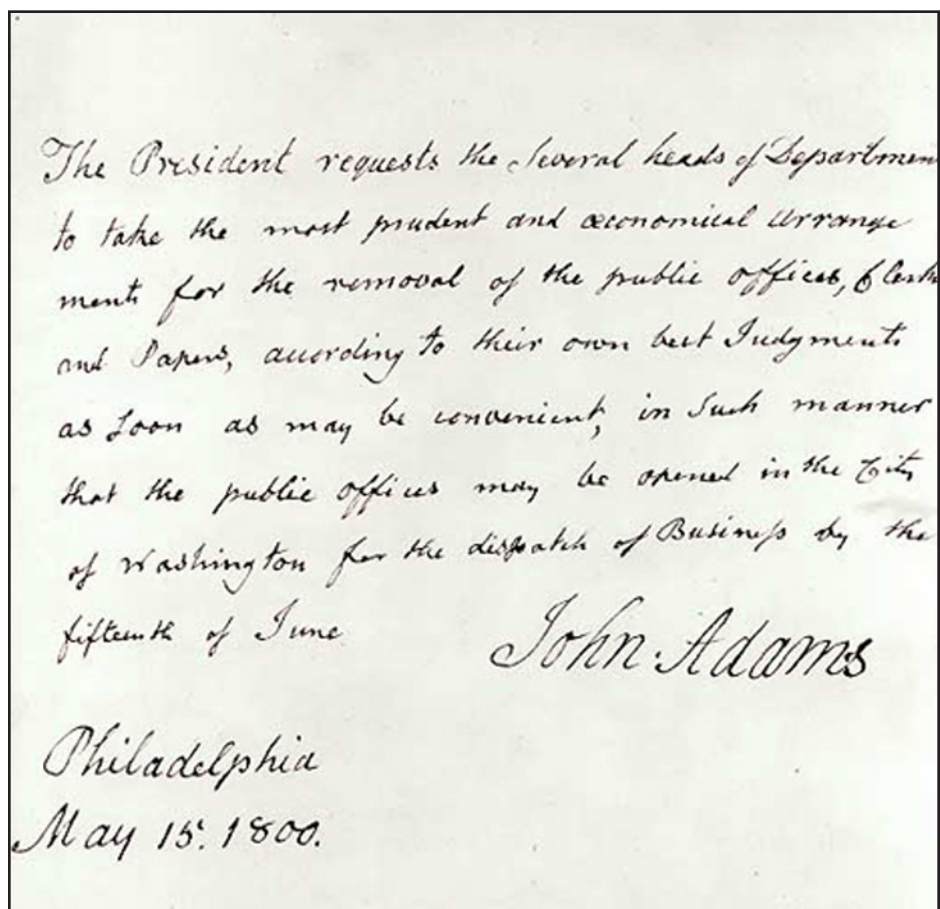 The President requests the Several heads of Departmen
to take the most prudent and œconomical arrange
ments for the removal of the public offices, Clerks
and Papers, according to their own best Judgments
as Soon as may be convenient, in Such manner
that the public offices may be opened in the City
of Washington for the dispatch of Business by the
fifteenth of June
John Adams
Philadelphia
May 15. 1800.